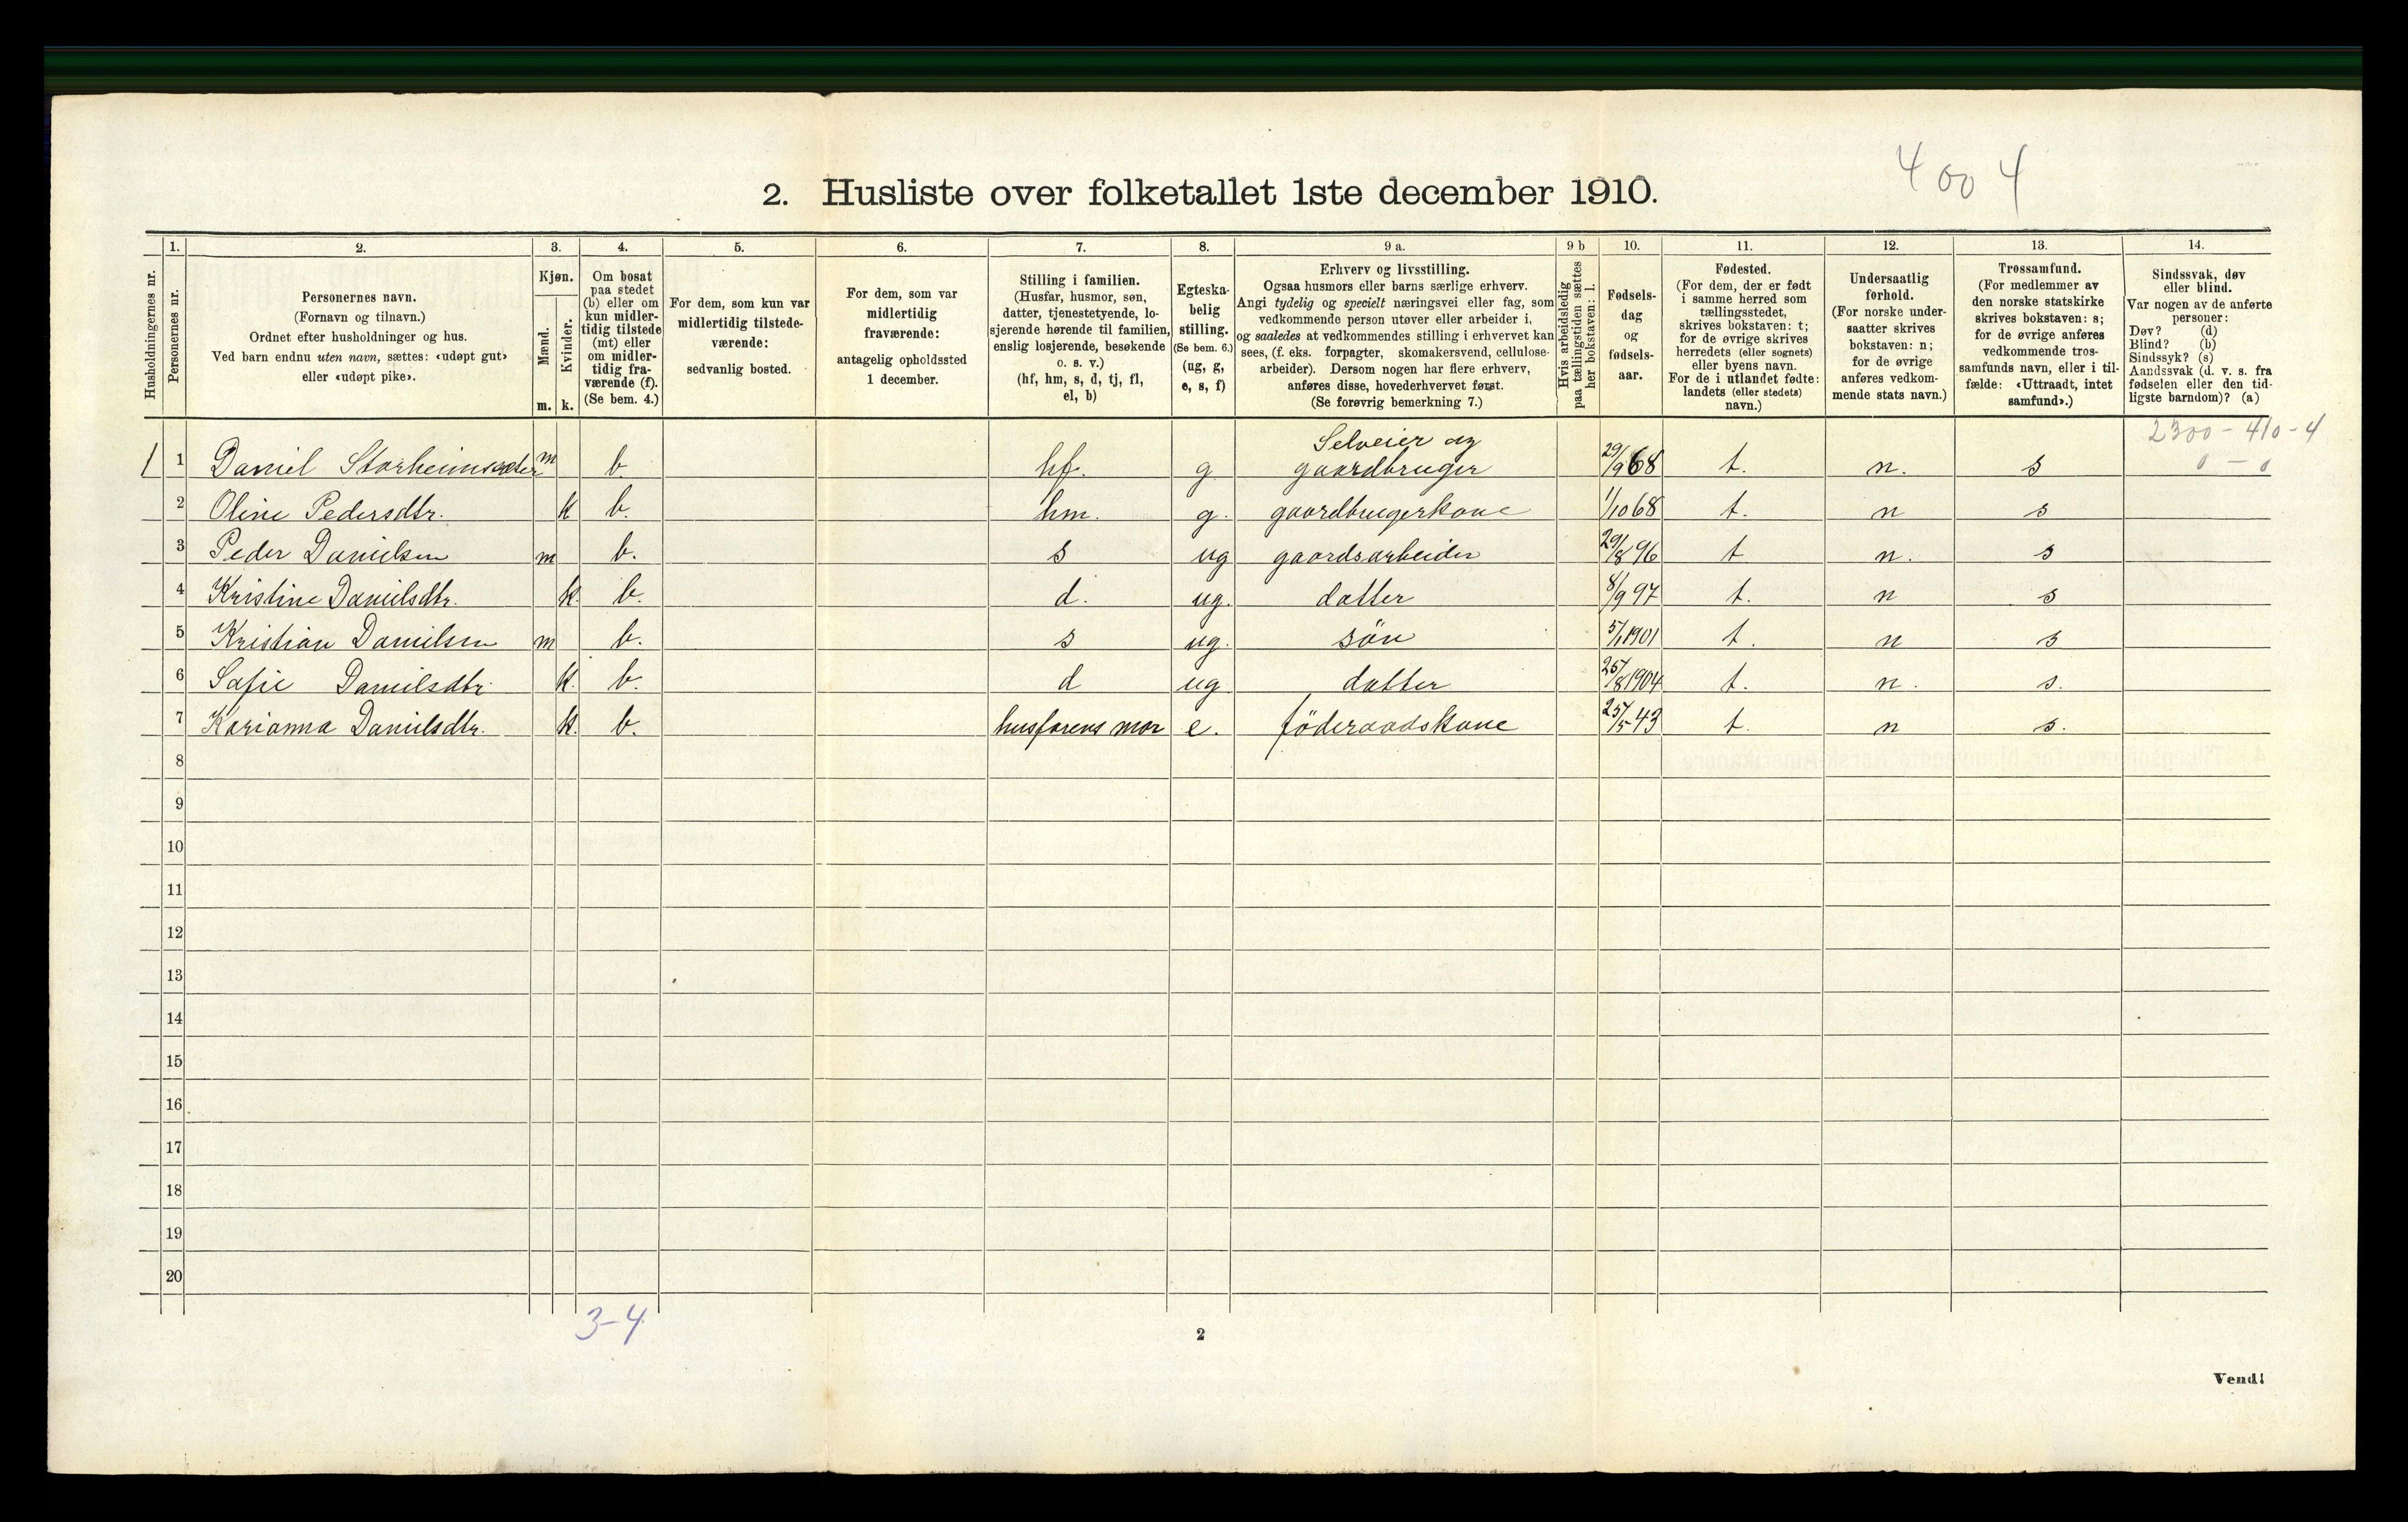 4 00 4
2. Husliste over folketallet 1ste december 1910.
1. 2. 3. 4. 5. 6. 7. 8. 9 a. 9 b 10. 11. 12. 13. 14.
Husholdningernes nr.
Personernes nr.
Personernes navn.
(Fornavn og tilnavn.)
Ordnet efter husholdninger og hus.
Ved barn endnu uten navn, sættes: «udøpt gut»
eller «udøpt pike».
Kjøn.
Mænd.
Kvinder.
m. k.
Om bosat
paa stedet
(b) eller om
kun midler-
tidig tilstede
(mt) eller
om midler-
tidig fra-
værende (f).
(Se bem. 4.)
For dem, som kun var
midlertidig tilstede-
værende:
sedvanlig bosted.
For dem, som var
midlertidig
fraværende:
antagelig opholdssted
1 december.
Stilling i familien.
(Husfar, husmor, søn,
datter, tjenestetyende, lo-
sjerende hørende til familien,
enslig losjerende, besøkende
o. s. v.)
(hf, hm, s, d, tj, fl,
el, b)
Egteska-
belig
stilling.
(Se bem. 6.)
(ug, g,
e, s, f)
Erhverv og livsstilling.
Ogsaa husmors eller barns særlige erhverv.
Angi tydelig og specielt næringsvei eller fag, som
vedkommende person utøver eller arbeider i,
og saaledes at vedkommendes stilling i erhvervet kan
sees, (f. eks. forpagter, skomakersvend, cellulose-
arbeider). Dersom nogen har flere erhverv,
anføres disse, hovederhvervet først.
(Se forøvrig bemerkning 7.)
Hvis arbeidsledig
paa tællingstiden sættes
her bokstaven: l.
Fødsels-
dag
og
fødsels-
aar.
Fødested.
(For dem, der er født
i samme herred som
tællingsstedet,
skrives bokstaven: t;
for de øvrige skrives
herredets (eller sognets)
eller byens navn.
For de i utlandet fødte:
landets (eller stedets)
navn.)
Undersaatlig
forhold.
(For norske under-
saatter skrives
bokstaven: n;
for de øvrige
anføres vedkom-
mende stats navn.)
Trossamfund.
(For medlemmer av
den norske statskirke
skrives bokstaven: s;
for de øvrige anføres
vedkommende tros-
samfunds navn, eller i til-
fælde: «Uttraadt, intet
samfund».)
Sindssvak, døv
eller blind.
Var nogen av de anførte
personer:
Døv? (d)
Blind? (b)
Sindssyk? (s)
Aandssvak (d. v. s. fra
fødselen eller den tid-
ligste barndom)? (a)
2300 - 410 - 4
0 - 0
1 1 Daniel Storheimsæter m b. hf. g Selveier og gaardbruger 29/9 68 t. n. s
2 Oline Pedersdtr. k b. hm. g. gaardbrugerkone 1/10 68 t. n s
3 Peder Danielsen m b. s ug gaardsarbeider 29/8 96 t n. s
4 Kristine Danielsdtr. k. b. d. ug. datter 8/9 97 t. n s
5 Kristian Danielsen m b. s ug. søn 5/1 1901 t. n s
6 Sofie Danielsdtr k. b. d ug. datter 25/8 1904 t. n. s.
7 Karianna Danielsdtr. k. b. husfarens mor e. föderaadskone 25/5 43 t. n s.
8
9
10
11
12
13
14
15
16
17
18
19
20
3-4
2
Vend!